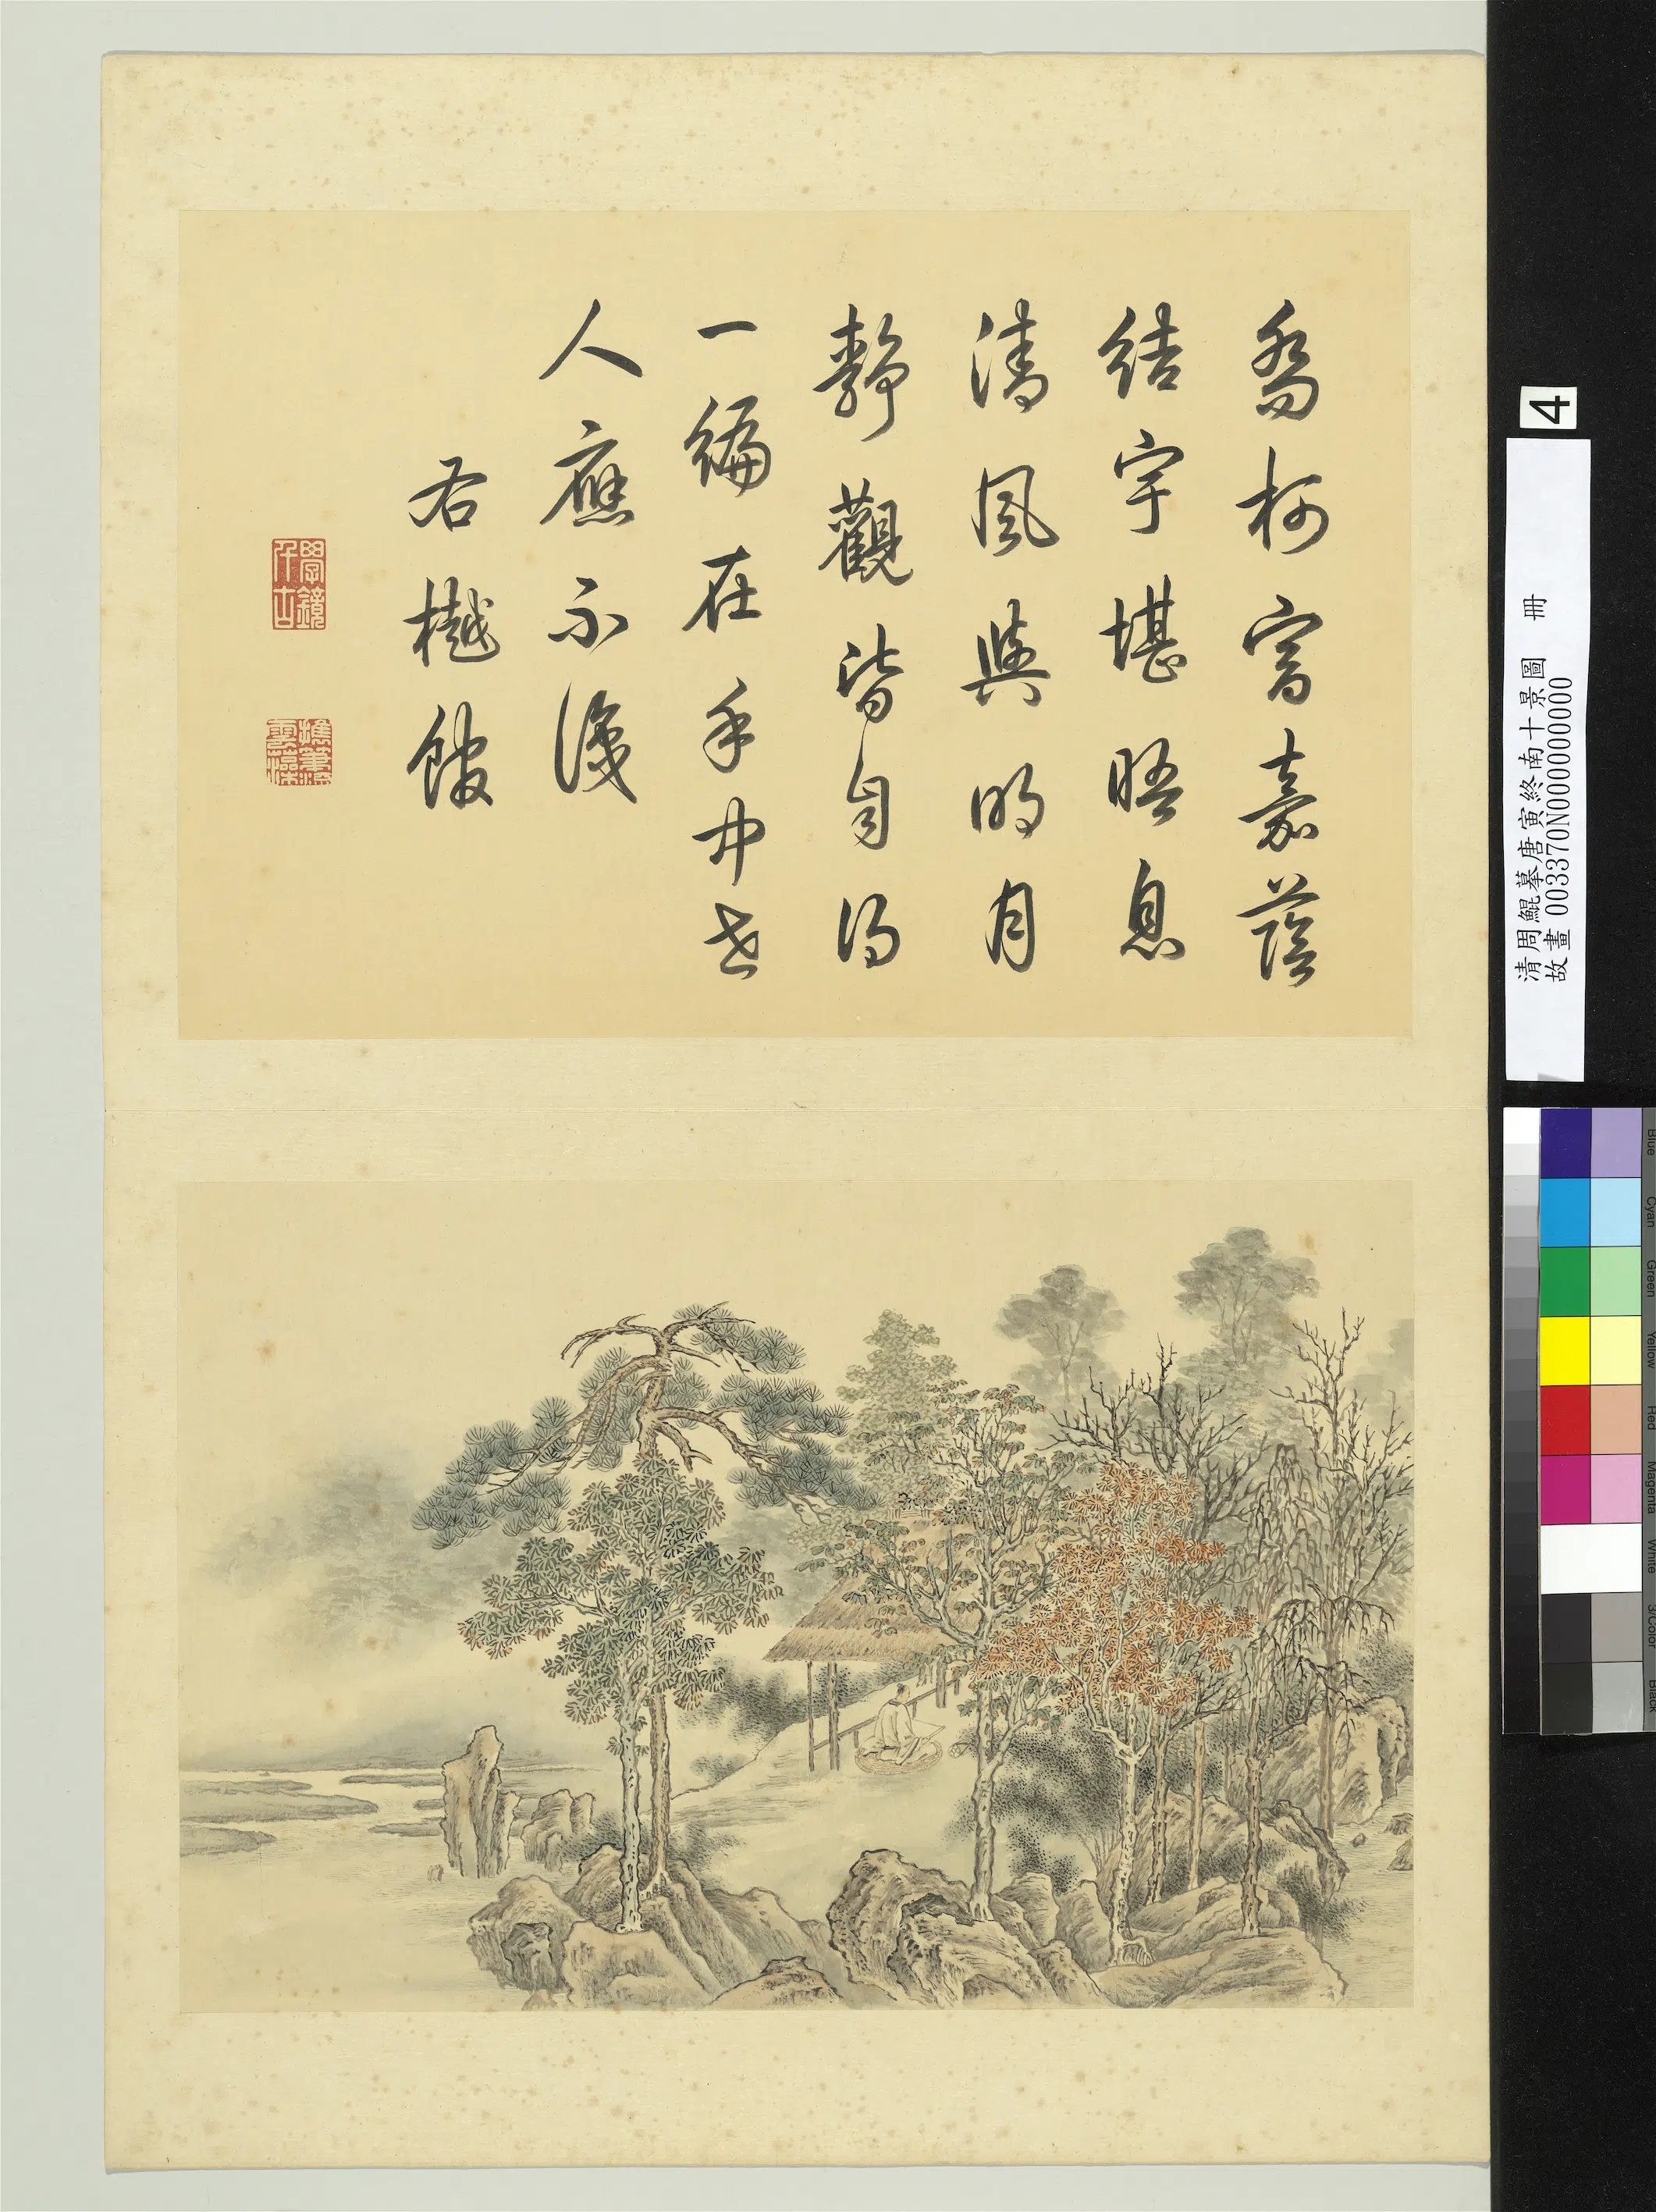 喬柯富嘉蔭
結宇堪晤息
清風與明月
靜觀皆自得
一編在手中世
人應不識
右樾館
學鏡千古
摛筆流雲藻
4
清周鯤摹唐寅終南十景圖 冊
故畫 003370N000000000
Blue
Cyan
Green
Yellow
Red
Magenta
White
3/Color
Black